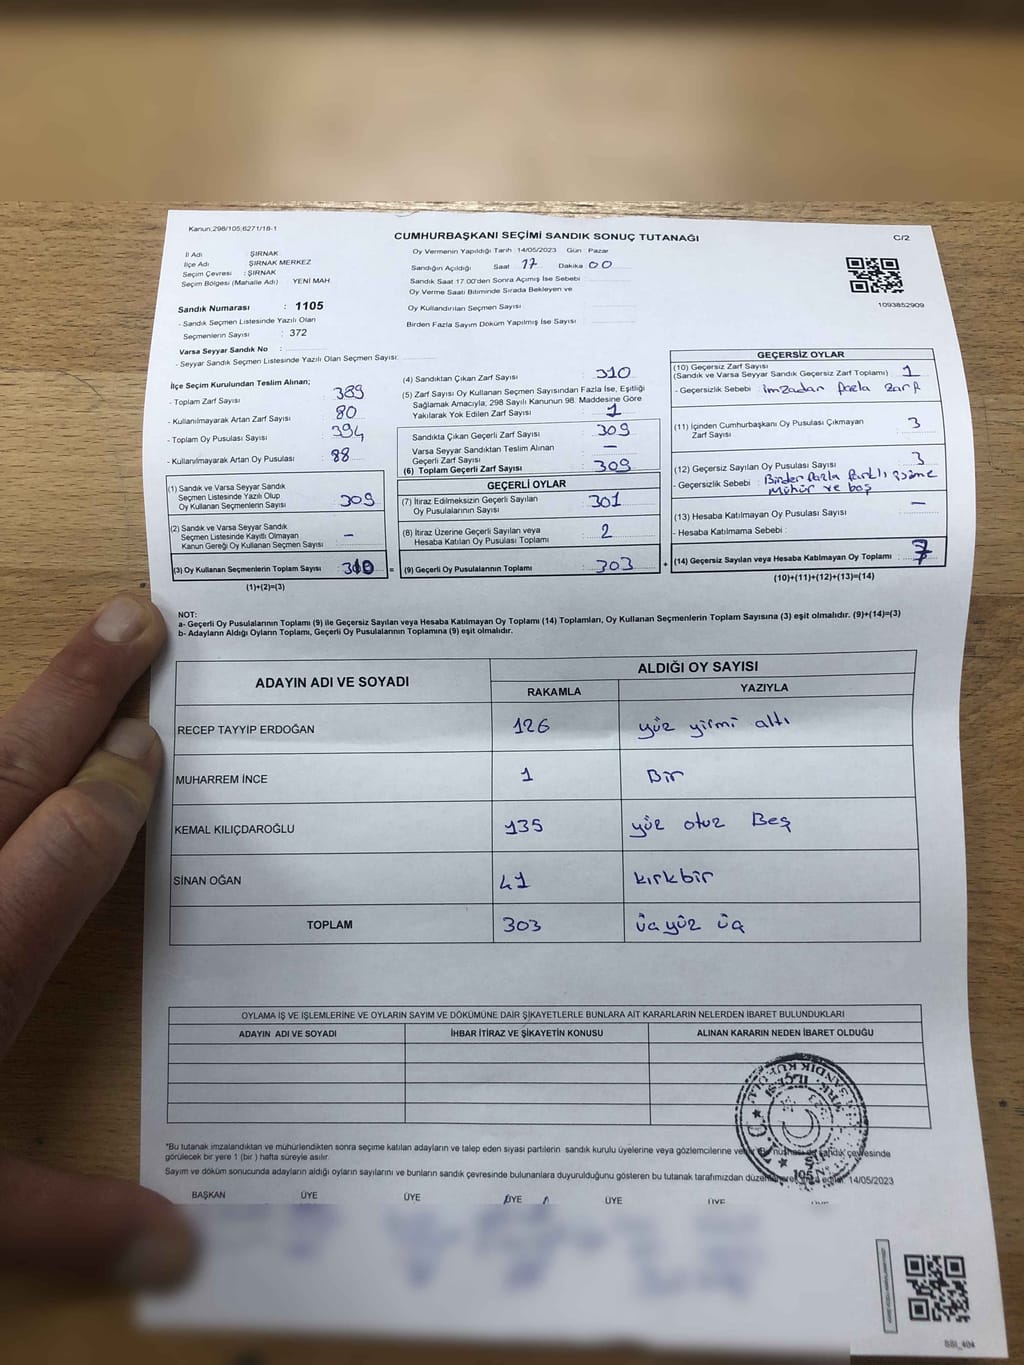 Kanun,298/105;6271/18-1
CUMHURBAŞKANI SEÇİMİ SANDIK SONUÇ TUTANAĞI
C/2
İl Adı : ŞIRNAK
İlçe Adı : ŞIRNAK MERKEZ
Seçim Çevresi : ŞIRNAK
Seçim Bölgesi (Mahalle Adı) YENİ MAH
Sandık Numarası : 1105
- Sandık Seçmen Listesinde Yazılı Olan
Seçmenlerin Sayısı : 372
Varsa Seyyar Sandık No :
- Seyyar Sandık Seçmen Listesinde Yazılı Olan Seçmen Sayısı:
Oy Vermenin Yapıldığı Tarih :14/05/2023 Gün : Pazar
Sandığın Açıldığı Saat : 17 Dakika : 00
Sandık Saat 17:00'den Sonra Açımış İse Sebebi :
Oy Verme Saati Bitiminde Sırada Bekleyen ve
Oy Kullandırılan Seçmen Sayısı :
Birden Fazla Sayım Döküm Yapılmış İse Sayısı :
1093852909
İlçe Seçim Kurulundan Teslim Alınan;
- Toplam Zarf Sayısı : 389
- Kullanılmayarak Artan Zarf Sayısı : 80
- Toplam Oy Pusulası Sayısı : 394
- Kullanılmayarak Artan Oy Pusulası : 88
(1) Sandık ve Varsa Seyyar Sandık
Seçmen Listesinde Yazılı Olup
Oy Kullanan Seçmenlerin Sayısı : 309
(2) Sandık ve Varsa Seyyar Sandık
Seçmen Listesinde Kayıtlı Olmayan
Kanun Gereği Oy Kullanan Seçmen Sayısı : -
(3) Oy Kullanan Seçmenlerin Toplam Sayısı : 310
(1)+(2)=(3)
(4) Sandıktan Çıkan Zarf Sayısı : 310
(5) Zarf Sayısı Oy Kullanan Seçmen Sayısından Fazla İse, Eşitliği
Sağlamak Amacıyla; 298 Sayılı Kanunun 98. Maddesine Göre
Yakılarak Yok Edilen Zarf Sayısı : 1
Sandıkta Çıkan Geçerli Zarf Sayısı : 309
Varsa Seyyar Sandıktan Teslim Alınan
Geçerli Zarf Sayısı : -
(6) Toplam Geçerli Zarf Sayısı : 309
GEÇERLİ OYLAR
(7) İtiraz Edilmeksizin Geçerli Sayılan
Oy Pusulalarının Sayısı : 301
(8) İtiraz Üzerine Geçerli Sayılan veya
Hesaba Katılan Oy Pusulası Toplamı : 2
= (9) Geçerli Oy Pusulalarının Toplamı : 303
GEÇERSİZ OYLAR
(10) Geçersiz Zarf Sayısı
(Sandık ve Varsa Seyyar Sandık Geçersiz Zarf Toplamı) : 1
- Geçersizlik Sebebi : imzadan fazla zarf
(11) İçinden Cumhurbaşkanı Oy Pusulası Çıkmayan
Zarf Sayısı : 3
(12) Geçersiz Sayılan Oy Pusulası Sayısı : 3
- Geçersizlik Sebebi : Birden fazla farklı isime
mühür ve boş
(13) Hesaba Katılmayan Oy Pusulası Sayısı : -
- Hesaba Katılmama Sebebi :
+ (14) Geçersiz Sayılan veya Hesaba Katılmayan Oy Toplamı : 7
(10)+(11)+(12)+(13)=(14)
NOT:
a- Geçerli Oy Pusulalarının Toplamı (9) ile Geçersiz Sayılan veya Hesaba Katılmayan Oy Toplamı (14) Toplamları, Oy Kullanan Seçmenlerin Toplam Sayısına (3) eşit olmalıdır. (9)+(14)=(3)
b- Adayların Aldığı Oyların Toplamı, Geçerli Oy Pusulalarının Toplamına (9) eşit olmalıdır.
ADAYIN ADI VE SOYADI
ALDIĞI OY SAYISI
RAKAMLA YAZIYLA
RECEP TAYYİP ERDOĞAN 126 yüz yirmi altı
MUHARREM İNCE 1 Bir
KEMAL KILIÇDAROĞLU 135 yüz otuz Beş
SİNAN OĞAN 41 kırkbir
TOPLAM 303 üçyüz üç
OYLAMA İŞ VE İŞLEMLERİNE VE OYLARIN SAYIM VE DÖKÜMÜNE DAİR ŞİKAYETLERLE BUNLARA AİT KARARLARIN NELERDEN İBARET BULUNDUKLARI
ADAYIN ADI VE SOYADI İHBAR İTİRAZ VE ŞİKAYETİN KONUSU ALINAN KARARIN NEDEN İBARET OLDUĞU
*Bu tutanak imzalandıktan ve mühürlendikten sonra seçime katılan adayların ve talep eden siyasi partilerin sandık kurulu üyelerine veya gözlemcilerine verilir. Bir nüshası da sandık çevresinde
görülecek bir yere 1 (bir) hafta süreyle asılır.
Sayım ve döküm sonucunda adayların aldığı oyların sayılarını ve bunların sandık çevresinde bulunanlara duyurulduğunu gösteren bu tutanak tarafımızdan 14/05/2023
BAŞKAN ÜYE ÜYE ÜYE ÜYE ÜYE ÜYE
SSI_404